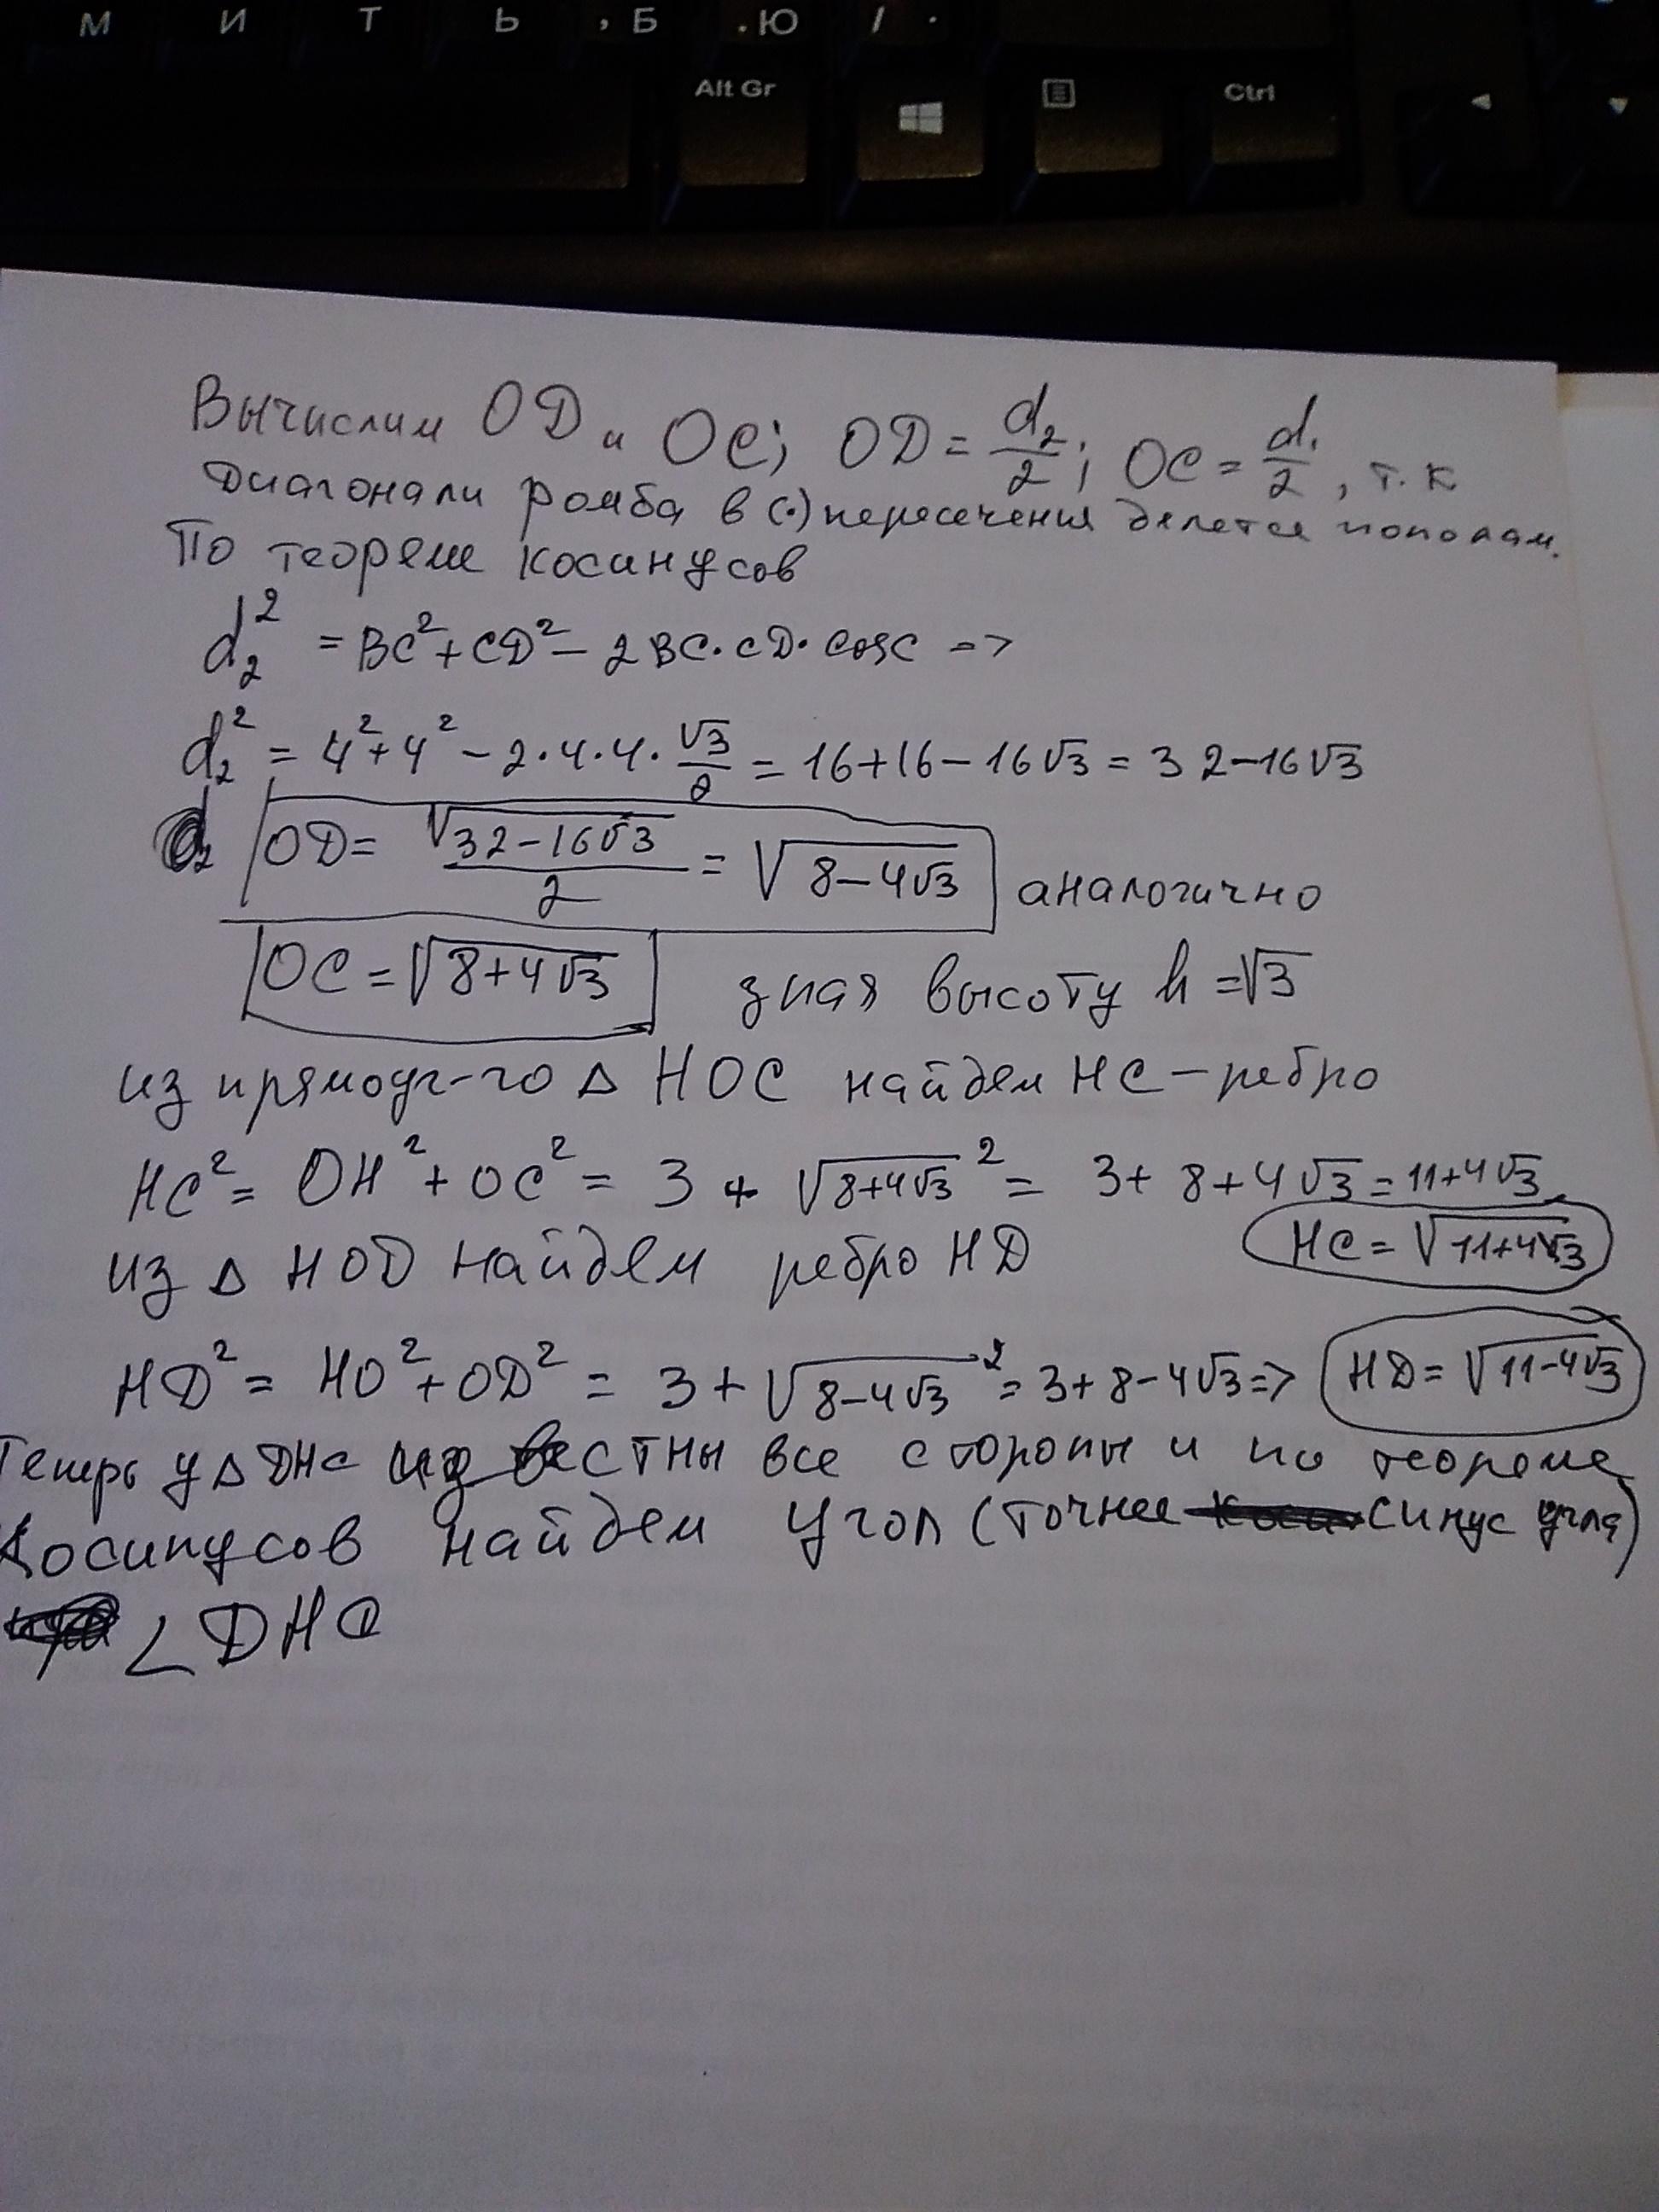 М И Т Ь , Б . Ю / .
Alt Gr Ctrl
Вычислим OD и OC; OD = d₂/2; OC = d₁/2, т.к
Диагонали ромба в (·) пересечения делятся пополам.
По теореме косинусов
d₂² = BC² + CD² − 2BC·CD·cosC =>
d₂² = 4² + 4² − 2·4·4·√3/2 = 16+16−16√3 = 32−16√3
OD = √(32−16√3)/2 = √(8−4√3) аналогично
OC = √(8+4√3) зная высоту h = √3
из прямоуг-го Δ HOC найдем HC − ребро
HC² = OH² + OC² = 3 + √(8+4√3)² = 3 + 8 + 4√3 = 11+4√3
HC = √(11+4√3)
из Δ HOD найдем ребро HD
HD² = HO² + OD² = 3 + √(8−4√3)² = 3+8−4√3 => HD = √(11−4√3)
Теперь у Δ DHC известны все стороны и по теореме
Косинусов найдем угол (точнее синус угла)
∠DHC